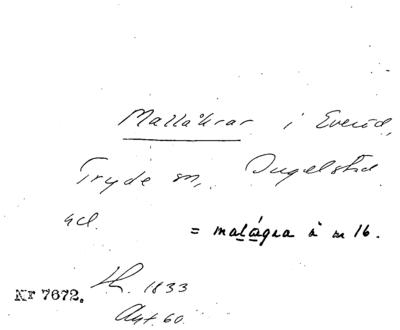 Mallåkrar i Everöd,
Tryde sn, Ingelstad
hd.
= malágra å m 16.
Nr 7672.
1833
Akt 60.